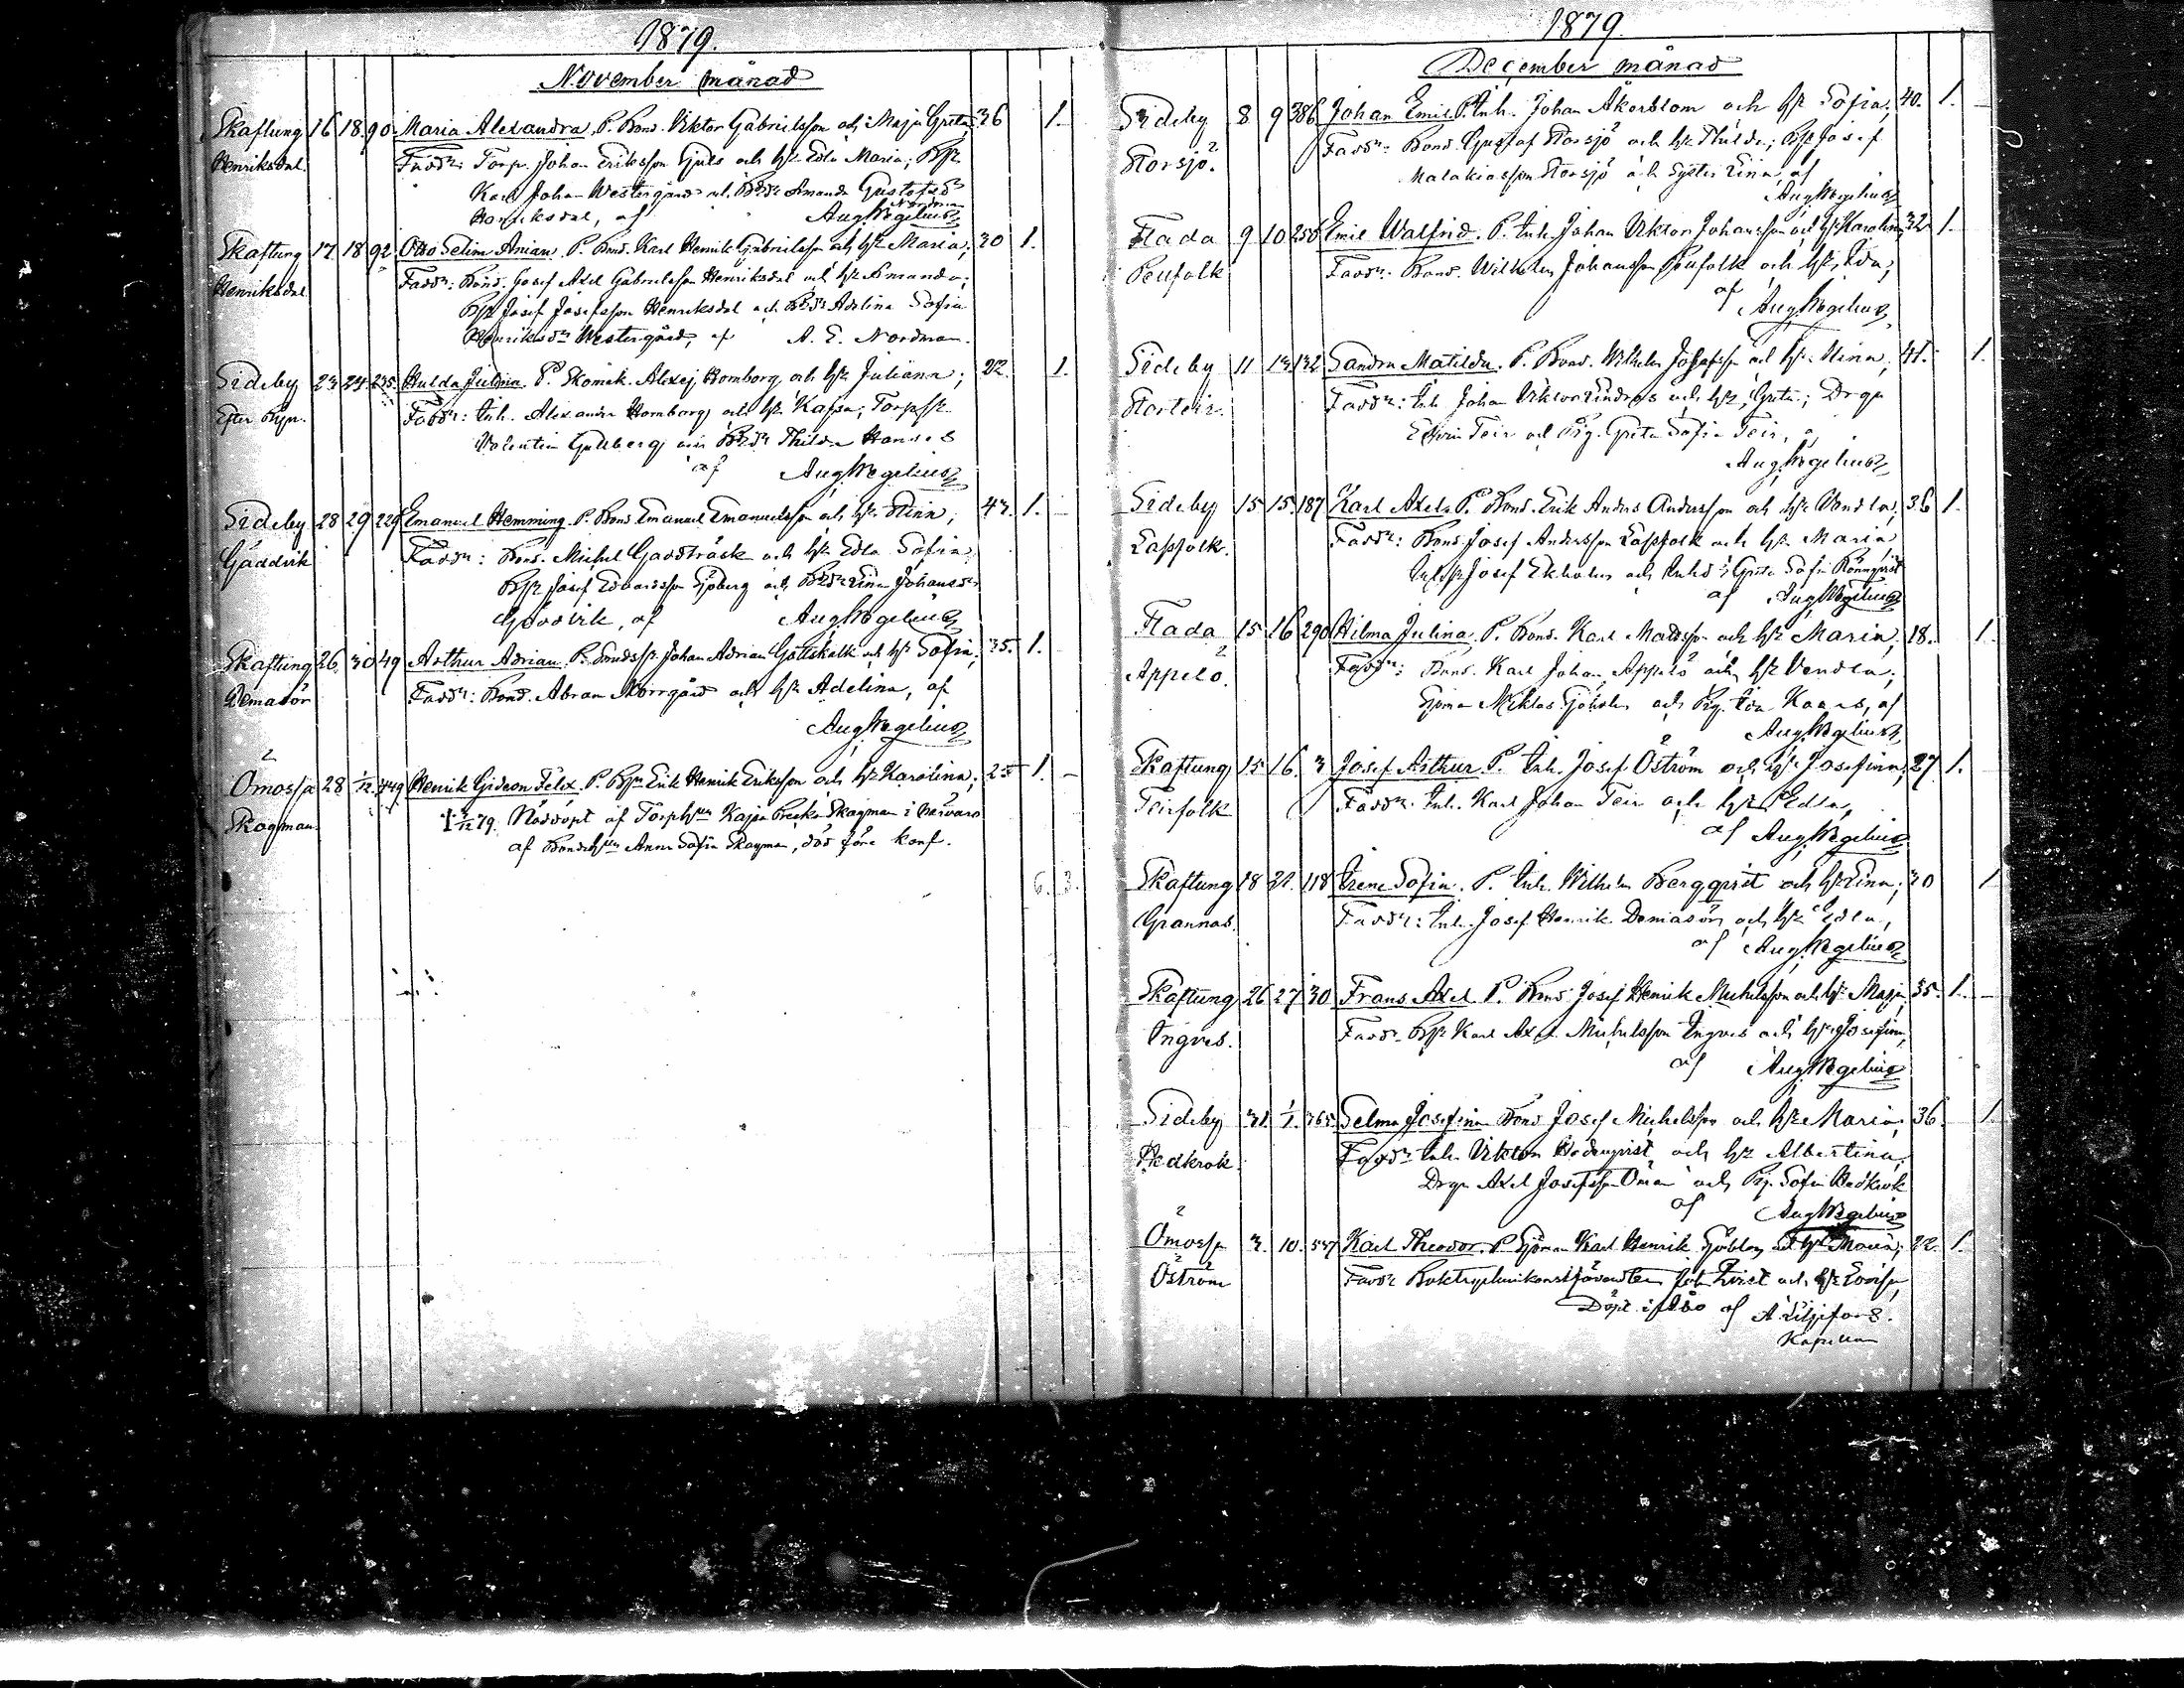 1879.
November månad
Skaftung 16 18 90. Maria Alexandra. P. Bond. Viktor Gabrielsson och Maja Greta; 36 1.
Henriksdal. Faddr: Torp. Johan Eriksson Gjuls och h: Edla Maria; Bs:
Karl Johan Westergård och Bdr Amanda Gustafsdr
Henriksdal, af Aug. Wegelius
Nordman
Skaftung 17 18 92 Otto Selim Anian. P. Bond. Karl Henrik Gabrielsson och h: Maria; 30 1.
Henriksdal Faddr: Bond. Josef Axel Gabrielsson Henriksdal och h: Amanda;
Bs: Josef Josefsson Henriksdal och Bdr Adelina Sofia
Henriksdr Westergård, af A. E. Nordman.
Sideby 23 24 235. Hulda Julina. P. Skomak. Alexej Homborg och h: Juliana; 22. 1.
Faddr: Inh. Alexander Homborg och h: Kajsa; Torps:
Valentin Gullberg och Bdr Thilda
af Aug. Wegelius
Sideby 28 29 229 Emanuel Hemming. P. Bond Emanuel Emanuelsson och h: Stina; 43. 1.
Gäddvik Faddr: Bond. Michel Gäddträsk och h: Edla Sofia
Bs: Josef Edvardsson Sjöberg och Bdr Lina Johansdr
Gäddvik, af Aug. Wegelius
Skaftung 26. 30 49 Arthur Adrian. P. Bondes: Johan Adrian Gottskalk och h: Sofia; 35. 1.
Demasör Faddr: Bond. Abram Norrgård och h: Adelina, af
Aug. Wegelius
Ömossa 28. 1/12. 449. Henrik Gideon Felix. P. Bs: Erik Henrik Eriksson och h: Karolina; 25 1.
Skogman 79. Nöddöpt af Kajsa Skogman i närvaro
af Anna Sofia Skogman, död före konf.
6. 3.
1879.
December månad
Sideby 8 9 386 Johan Emil. P. Inh. Johan Åkerblom och h: Sofia; 40. 1.
Storsjö. Faddr: Bond. Gustaf Storsjö och h: Thilda; Bs: Josef
Malakiasson Storsjö och Syster Lina, af
Aug. Wegelius
Flada 9 10 256 Emil Walfrid. P. Inh. Johan Viktor Johansson och h: Karolina; 32 1.
Penfolk Faddr: Bond. Wilhelm Johansson Penfolk och h: Ida;
af Aug. Wegelius
Sideby 11 13 132 Sandra Matilda. P. Bond. Wilhelm Josefsson och h: Stina; 41. 1.
Storteir. Faddr: Inh. Johan Viktor Lindroos och h: Greta; Drge
Edvin Teir och Pig. Greta Sofia Teir, af
Aug. Wegelius
Sideby 15 15. 187 Karl Axel. P. Bond. Erik Anders Andersson och h: Vendla; 36 1.
Lappfolk. Faddr: Bond Josef Andersson Lappfolk och h: Maria
Josef Ekholm och Greta Sofia Rönnqvist
af Aug. Wegelius
Flada 15 16 290 Hilma Julina. P. Bond. Karl Mattsson och h: Maria; 18. 1.
Appelö. Faddr: Bond. Karl Johan Appelö och h: Vendla;
Sjöman Niklas Sjöholm och Pig. Ida Kaars, af
Aug. Wegelius
Skaftung 15 16. 3 Josef Arthur. P. Inh. Josef Öström och h: Josefina; 27 1.
Teirfolk Faddr: Inh. Karl Johan Teir och h: Edla,
af Aug. Wegelius
Skaftung 18 21. 118 Irene Sofia. P. Inh. Wilhelm Bergqvist och h: Lina; 30 1
Grannas. Faddr: Inh. Josef Henrik Demasör och h: Edla,
af Aug. Wegelius
Skaftung 26 27 30 Frans Axel. P. Bond. Josef Henrik Michelsson och h: Maja; 35. 1.
Ingves. Faddr: Bs: Karl Axel Michelsson Ingves och h: Josefina,
af Aug. Wegelius
Sideby 31. 1/1. 365. Selma Josefina. Bond Josef Michelsson och h: Maria; 36 1.
Hedkrok. Faddr: Inh. Viktor och h: Albertina,
Drge Axel Josefsson Öman och Pig. Sofia Hedkrok
af Aug. Wegelius
Ömossa 3. 10. 537 Karl Theodor. P. Sjöman Karl Henrik Sjöblom och h: Maria; 22. 1.
Öström Faddr: Boktryckerikonstförvandten Joh. Qvist och h: Lovisa,
Döpt i Åbo af A. Liljefors.
Kapellan